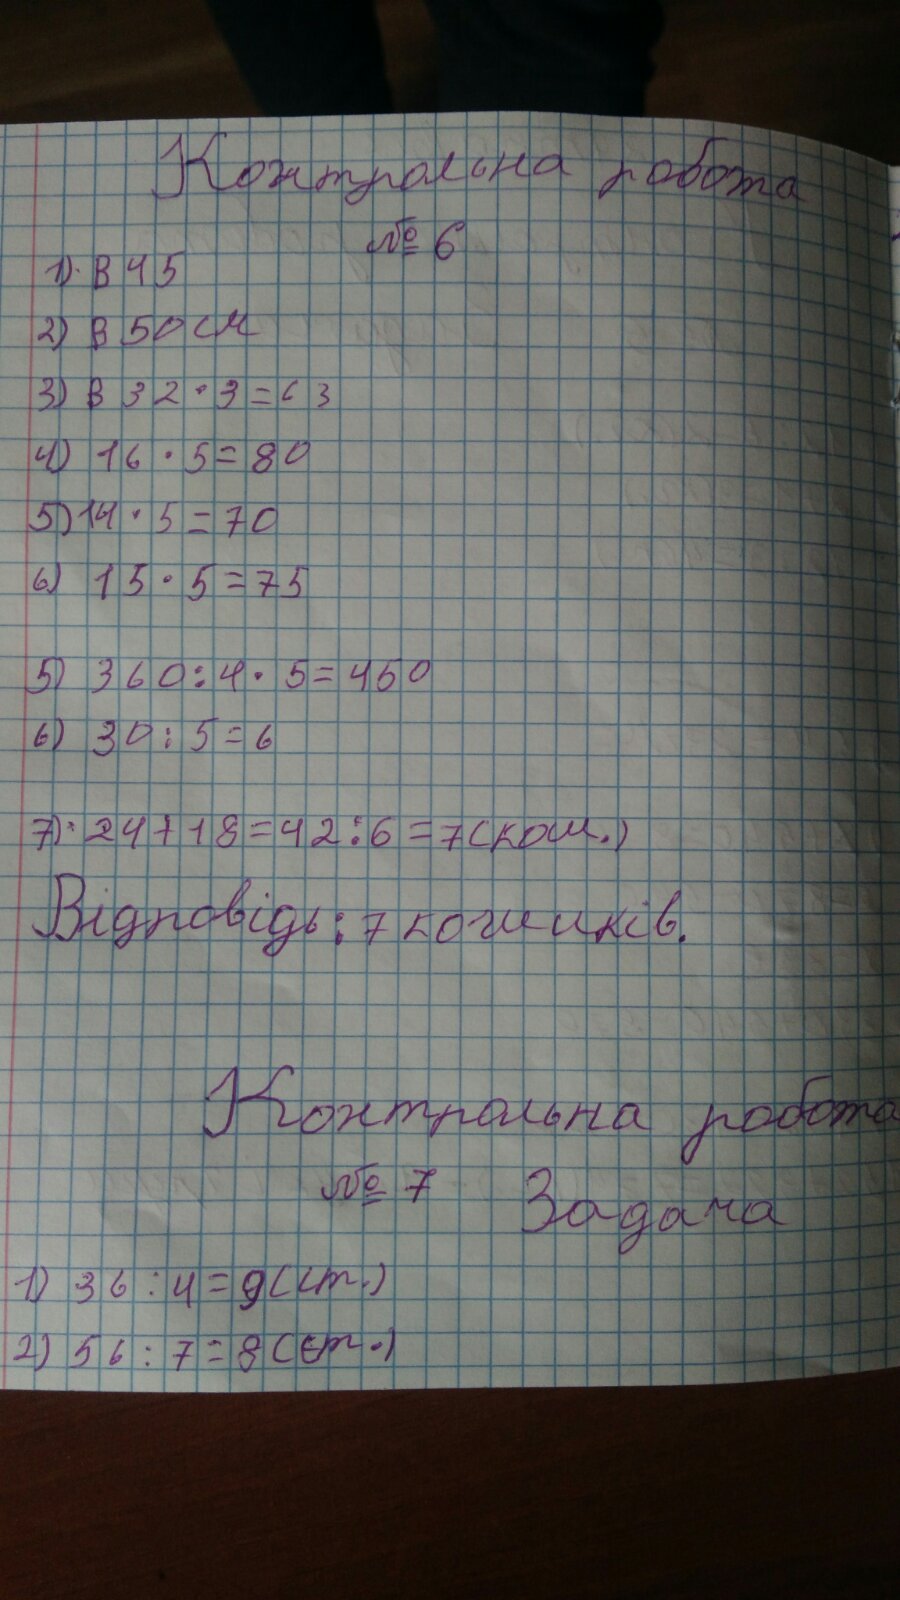 Контрольна робота
№ 6
1) В 45
2) В 50 см
3) В 32 · 3 = 63
4) 16 · 5 = 80
5) 14 · 5 = 70
6) 15 · 5 = 75
5) 360 : 4 · 5 = 450
6) 30 : 5 = 6
7) 24 + 18 = 42 : 6 = 7 (кош.)
Відповідь: 7 кошиків.
Контрольна робота
№ 7 Задача
1) 36 : 4 = 9 (ст.)
2) 56 : 7 = 8 (ст.)